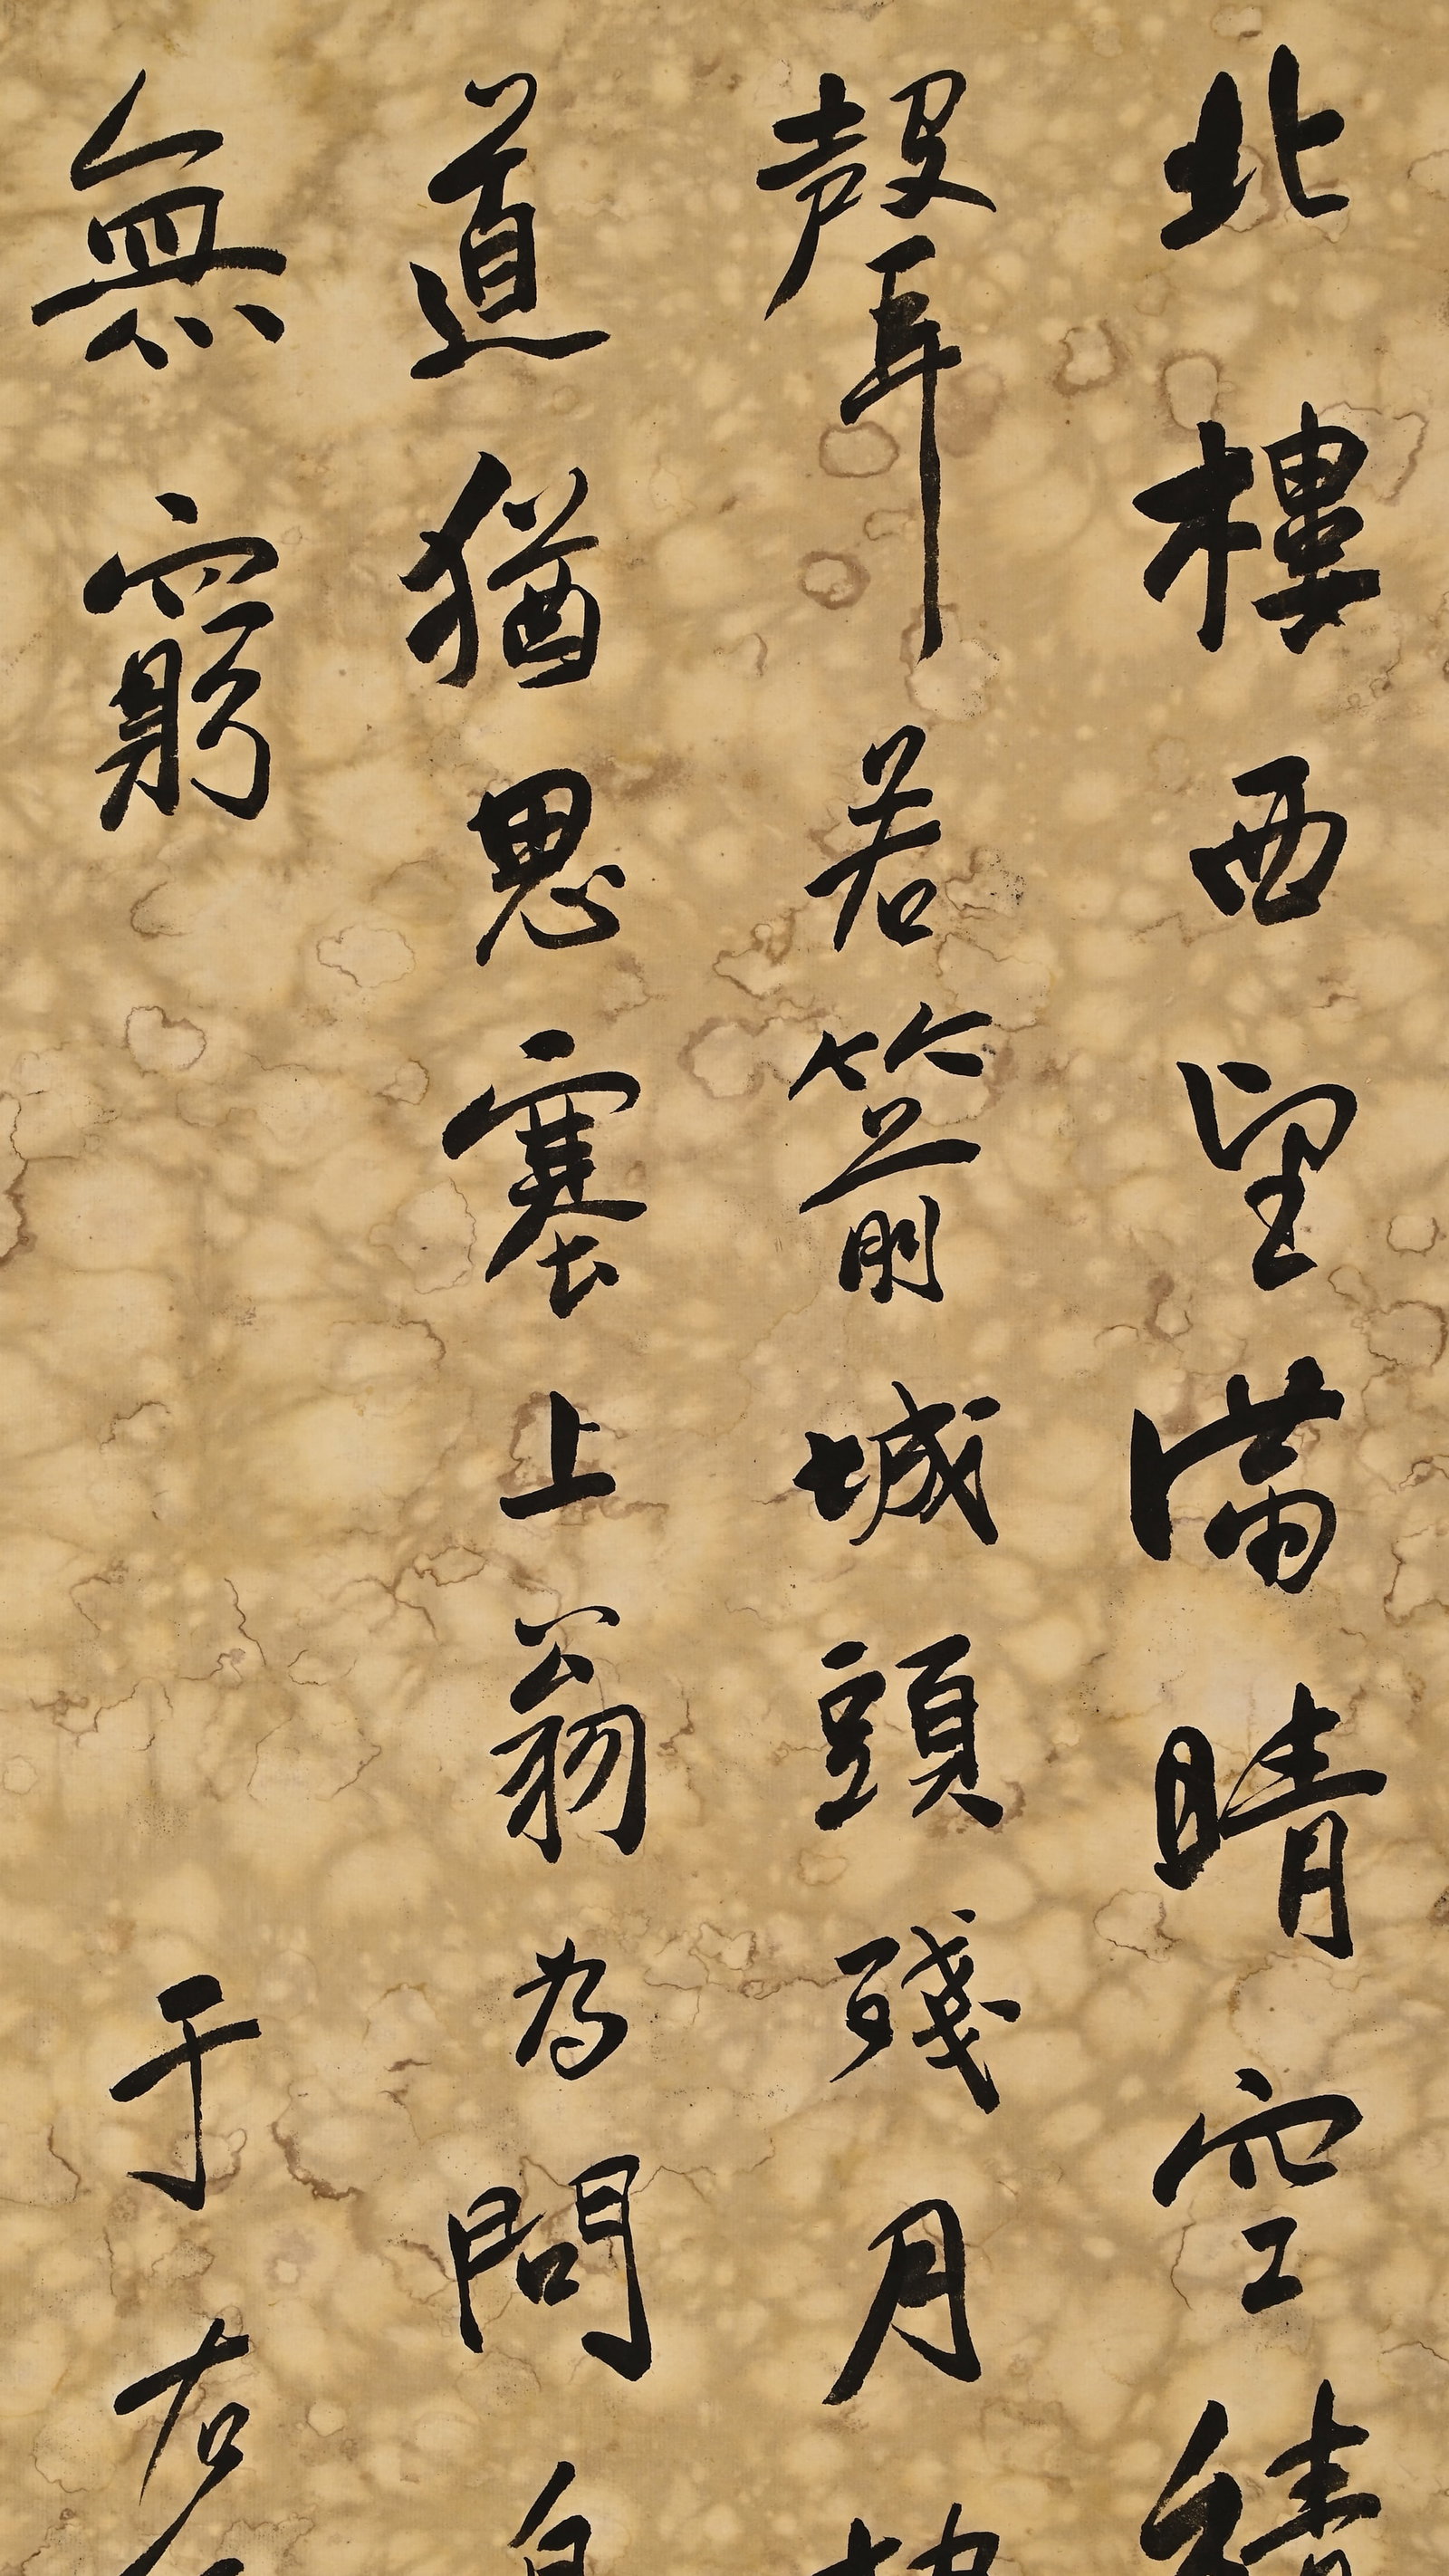 北樓西望滿晴空
聲若箭城頭殘月
道猶思塞上翁為問
無窮 于右